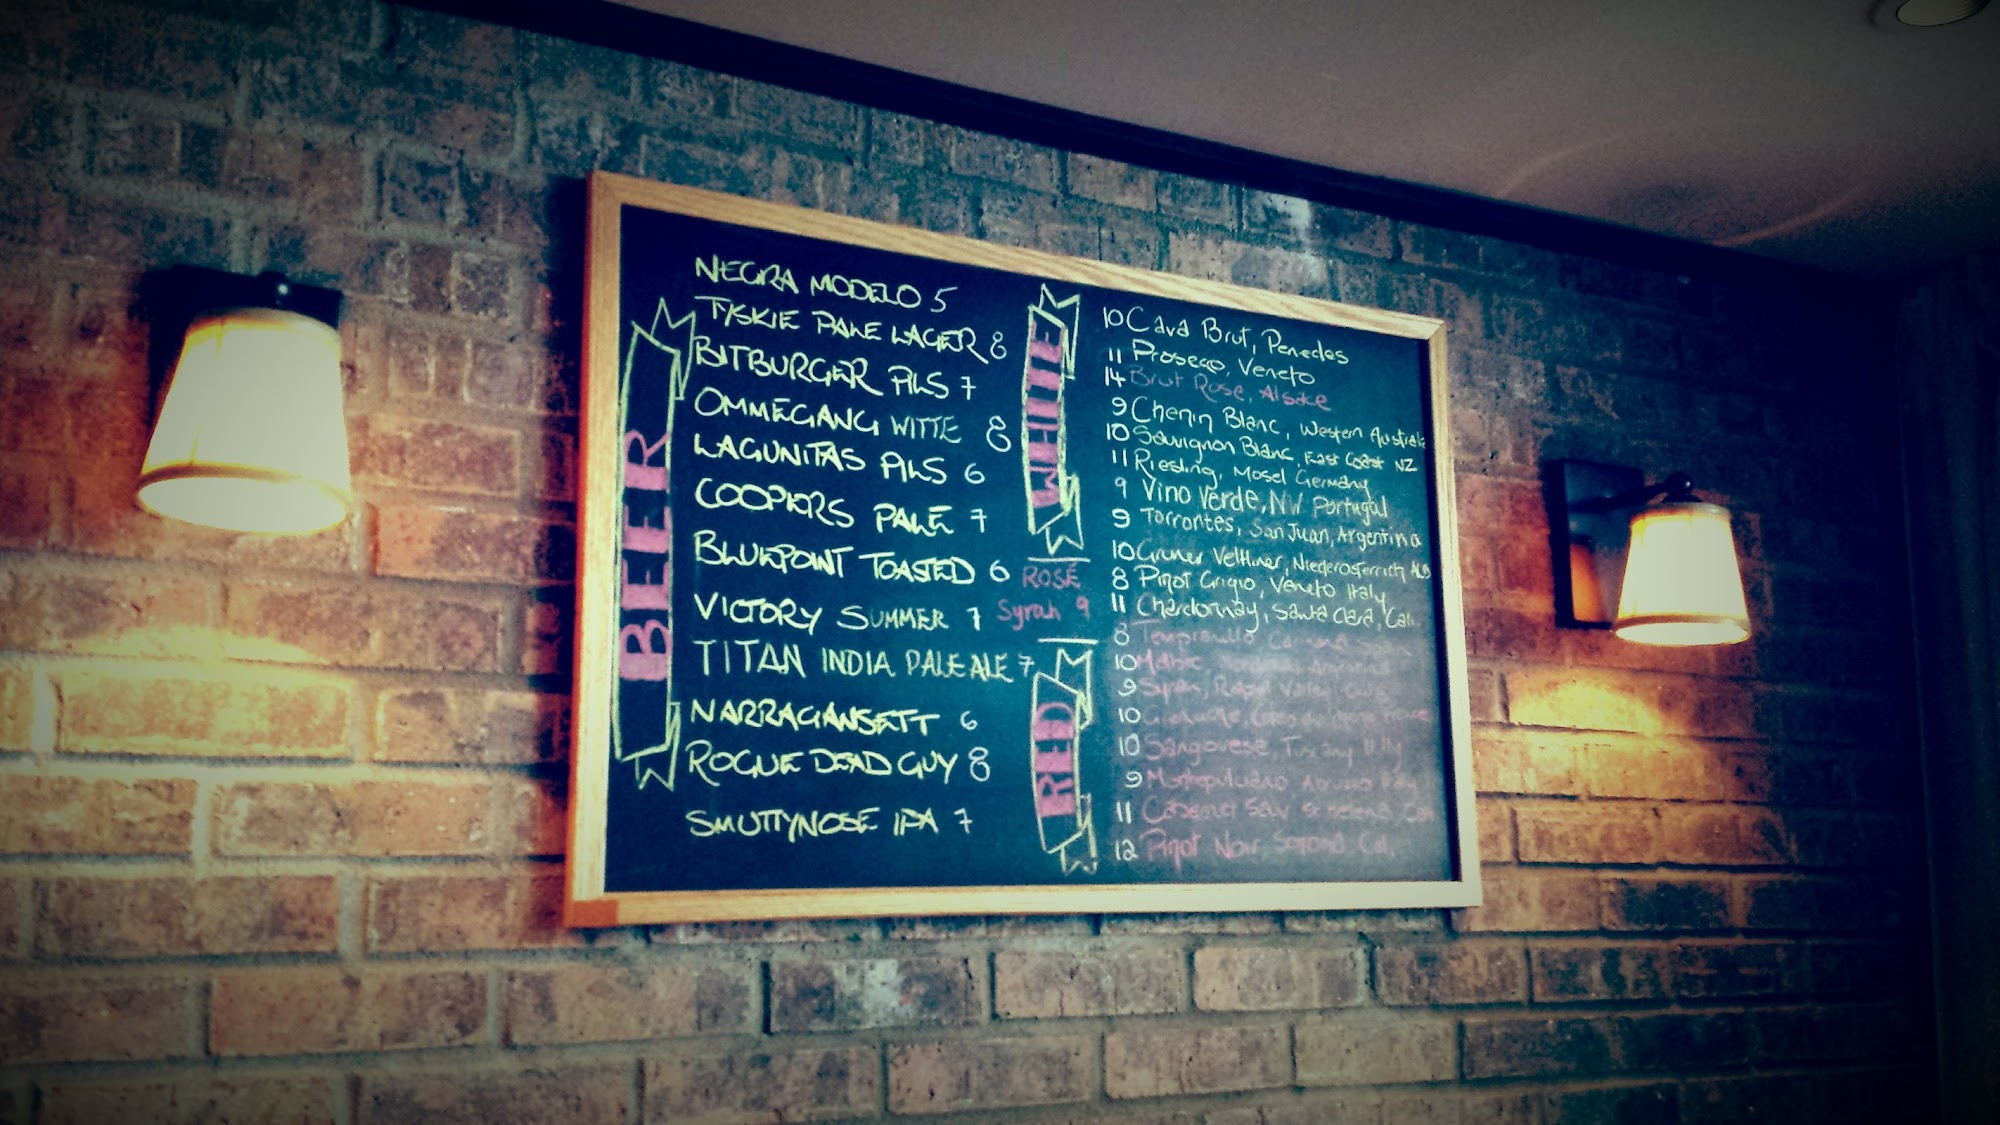 BEER
NEGRA MODELO 5
TYSKIE PALE LAGER 8
BITBURGER PILS 7
OMMEGANG WITTE 8
LAGUNITAS PILS 6
COOPERS PALE 7
BLUEPOINT TOASTED 6
VICTORY SUMMER 7
TITAN INDIA PALE ALE 7
NARRAGANSETT 6
ROGUE DEAD GUY 8
SMUTTYNOSE IPA 7
WHITE
10 Cava Brut, Penedes
11 Prosecco, Veneto
14 Brut Rose, Alsake
9 Chenin Blanc, Western Australia
10 Sauvignon Blanc, East Coast NZ
11 Riesling, Mosel Germany
9 Vino Verde, NV Portugal
9 Torrontes, San Juan, Argentina
10 Gruner Veltliner, Niederosterrich AUS
8 Pinot Grigio, Veneto Italy
11 Chardonnay, Santa Clara, Cali
ROSÉ
Syrah 9
RED
8 Tempranillo
10 Malbec
9 Syrah, Rapel Valley
10
10 Sangiovese Tuscany Italy
9 Montepulciano Abruzzo Italy
11 Cabernet Sauv
12 Pinot Noir, Sonoma Cal.